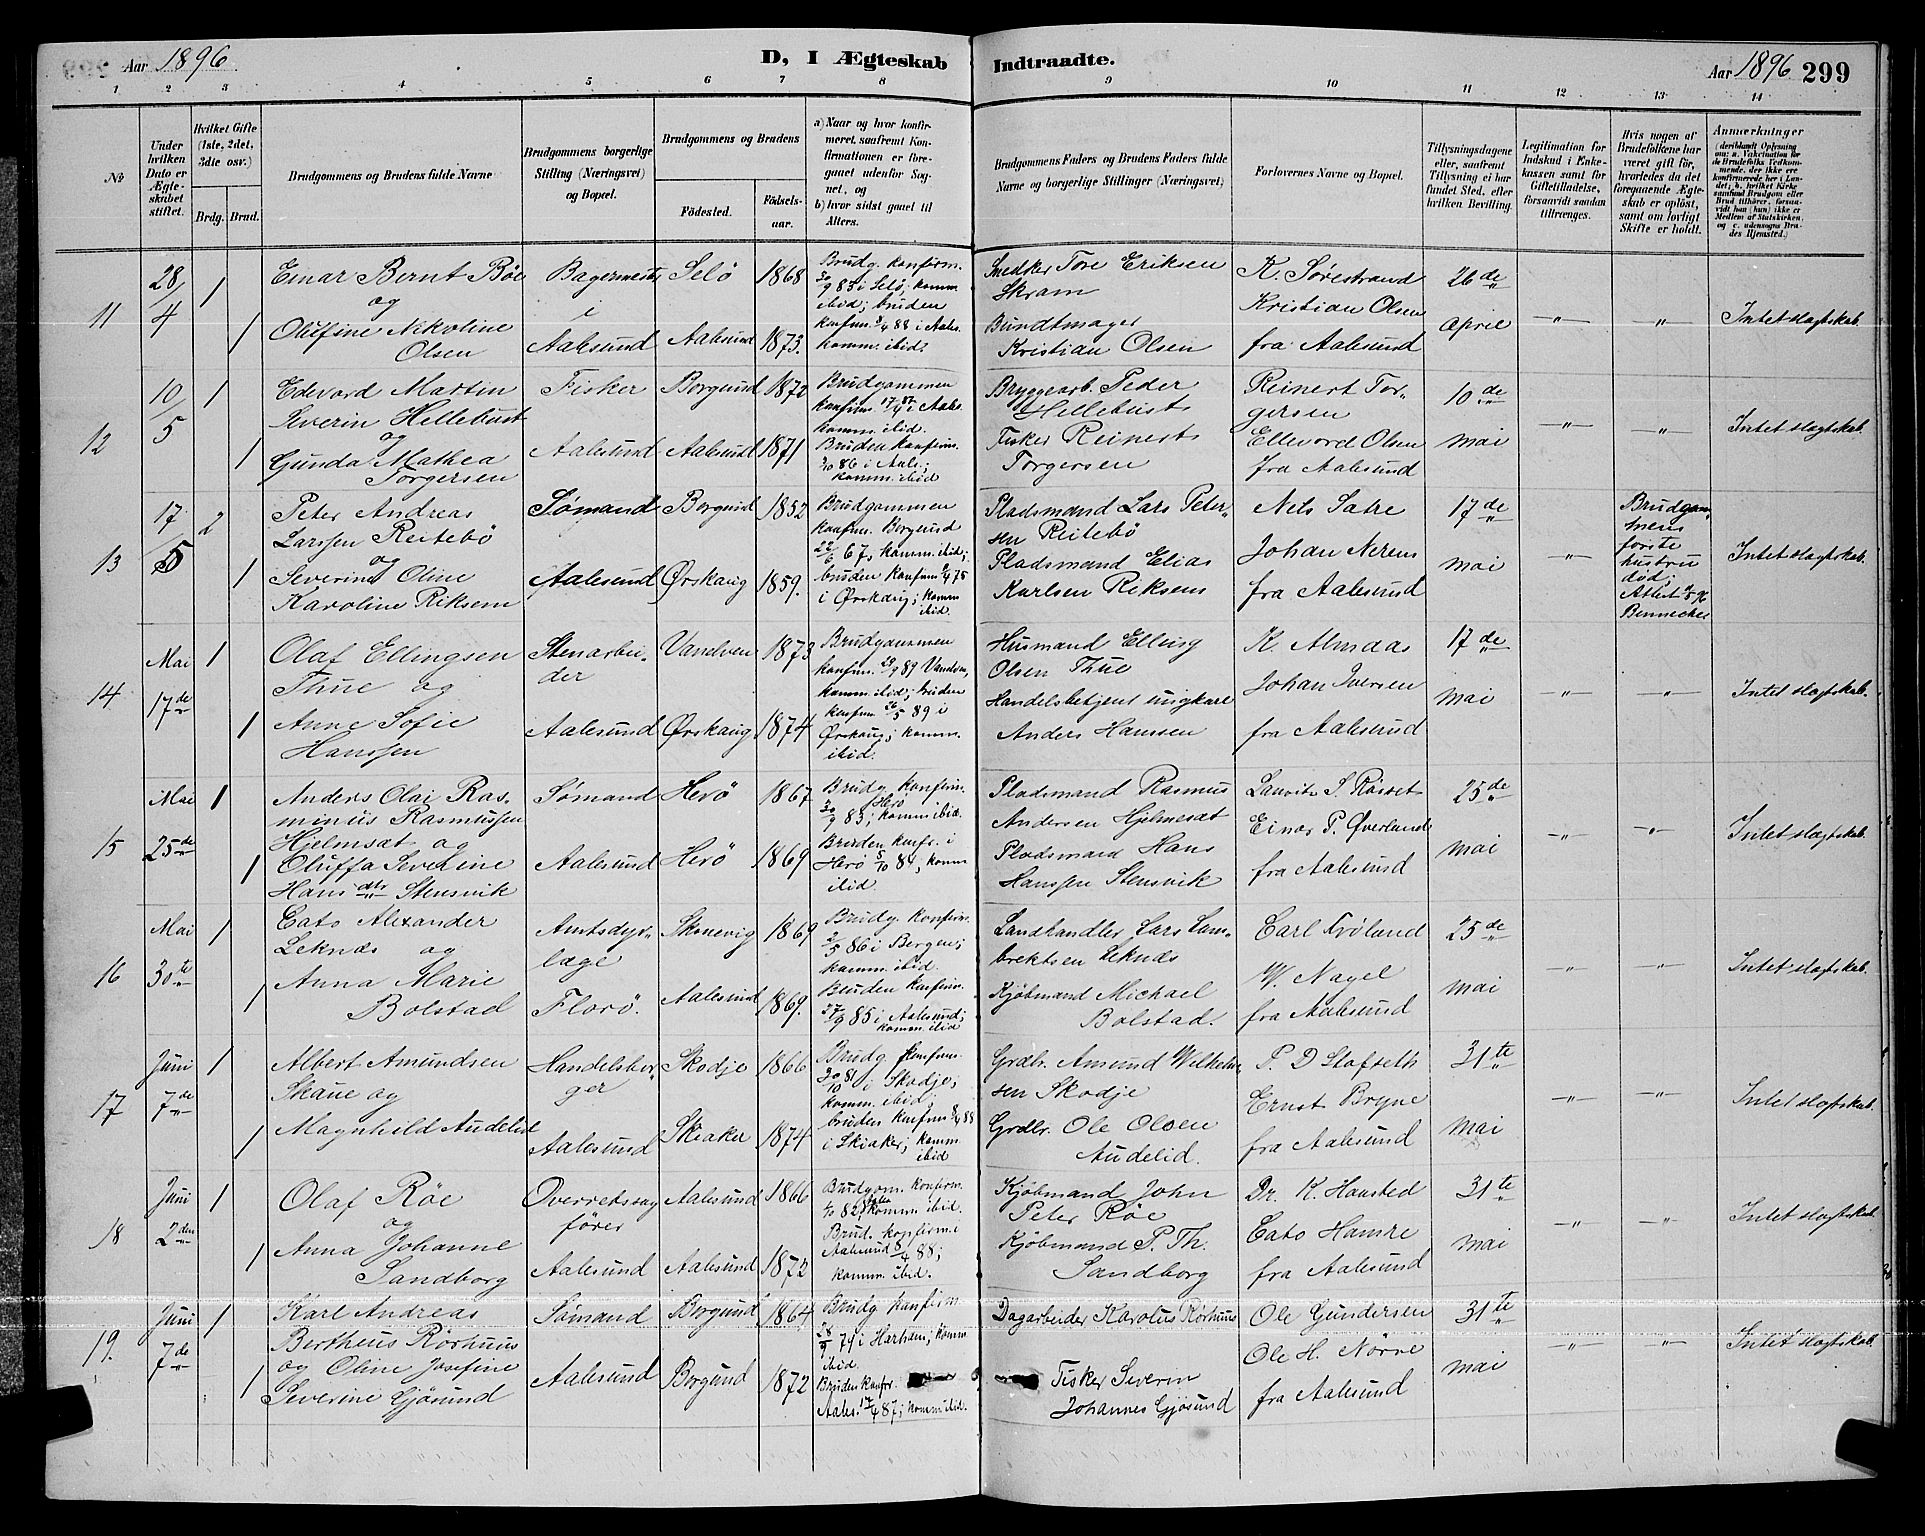 Aar 1896
D, I Ægteskab
Indtraadte.
Aar 1896
299
1 2 3 4 5 6 7 8 9 10 11 12 13 14
No
Under
hvilken
Dato er
Ægte-
skabet
stiftet.
Hvilket Gifte
(1ste, 2det,
3die osv.)
Brdg. Brud.
Brudgommens og Brudens fulde Navne
Brudgommens borgerlige
Stilling (Næringsvei)
og Bopæl.
Brudgommens og Brudens
Födested.
Födsels-
aar.
a) Naar og hvor konfir-
meret, saafremt Kon-
firmationen er fore-
gaaet udenfor Sog-
net, og
b) hvor sidst gaaet til
Alters.
Brudgommens Faders og Brudens Faders fulde
Navne og borgerlige Stillinger (Næringsvei)
Forlovernes Navne og Bopæl.
Tillysningsdagene
eller, saafremt
Tillysning ei har
fundet Sted, efter
hvilken Bevilling.
Legitimation for
Indskud i Enke-
kassen samt for
Giftetilladelse,
forsaavidt saadan
tiltrænges.
Hvis nogen af
Brudefolkene har
været gift för,
hvorledes da det
foregaaende Ægte-
skab er oplöst,
samt om lovligt
Skifte er holdt.
Anmærkninger
(deriblandt Oplysning
om: a. Vakcination for
de Brudefolks Vedkom-
mende, der ikke ere
konfirmerede her i Lan-
det; b. hvilket Kirke-
samfund Brudgom eller
Brud tilhörer, forsaa-
vidt han (hun) ikke er
Medlem af Statskirken,
og c. udensogns Bru-
des Hjemsted.)
11
28/4
1
1
Einar Bernt Böe
og
Olufine Nikoline
Olsen
Bagermester
i
Aalesund
Selö 1868
Aalesund 1873.
Brudg. konfirm.
30/9 83 i Selö; komm
ibid; bruden
konfirm. 8/4 88 i Aales.
komm. ibid.
Snedker Tore Eriksen
Skram
Bundtmager
Kristian Olsen
K. Sørestrand
Kristian Olsen
fra Aalesund
26de
April
Intet slagtskab.
12
10/5
1
1
Edvard Martin
Severin Hellebust
og
Gunda Mathea
Torgersen
Fisker
Aalesund
Borgund 1872
Aalesund 1871
Brudgommen
konfirm. 17/4 87 i Aales.
komm. ibid.
Bruden konfirm.
3/10 86 i Aales;
komm. ibid
Bryggearb. Peder
Hellebust
Fisker Reinert
Torgersen
Reinert Tor-
gersen
Ellevord Olsen
fra Aalesund
10de
mai
Intet slagtskab.
13
17/5
2
1
Peter Andreas
Larssen Reitebö
og
Severine Oline
Karoline Riksem
Sømand
Aalesund
Borgund 1852
Ørskaug 1859.
Brudgommen
konfirm. Borgund
22/6 67, komm. ibid;
bruden konfirm 75
i Ørskaug; komm
ibid.
Pladsmand Lars Peter-
sen Reitebö
Pladsmand Elias
Karlsen Reksem
Nels Satre
Johan Nerem
fra Aalesund
17de
mai
Brudgom-
mens
første
hustru
död;
Attest
Bennecke
Intet slagtskab.
14
Mai
17de
1
1
Olaf Ellingsen
Thue og
Anne Sofie
Hanssen
Stenarbei-
der
Aalesund
Vandven 1873
Ørskaug 1874
Brudgommen
konfirm. 29/9 89 Vandven,
komm. ibid; bruden
konfirm. 26/5 89 i
Ørskaug; komm.
ibid.
Husmand Elling
Olsen Thue
Handelsbetjent ungkarl
Anders Hanssen
K. Almaas
Johan Iversen
fra Aalesund
17de
mai
Intet slagtskab.
15
Mai
25de
1
1
Anders Olai Ras-
minius Rasmussen
Hjelmsæt og
Oluffa Severine
Hans dtr Stensvik
Sømand
Aalesund
Herö 1867
Herö 1869
Brudg. konfirm.
30/9 83 Herö; komm ibid.
Bruden konfr. i
Herö 5/10 84, komm
ibid.
Pladsmand Rasmus
Andersen Hjelmesæt
Pladsmand Hans
Hanssen Stensvik
Lauritz S. Röset
Einar P. Øverland
fra Aalesund
25de
mai
Intet slagtskab.
16
Mai
30te
1
1
Cato Alexander
Leknæs og
Anna Marie
Bolstad
Amtsdyr-
læge
Florö.
Skonevig 1869
Aalesund 1869.
Brudg. konfirm.
2/5 86 i Bergen;
komm. ibid.
Bruden konfirm.
27/9 85 i Aalesund;
komm. ibid
Landhandler Lars Lam-
brektsen Leknæs
Kjöbmand Michael
Bolstad.
Carl Fröland
W. Nagel
fra Aalesund
25de
mai
Intet slagtskab.
17
Juni
7de
1
1
Albert Amundsen
Skaue og
Magnhild Audelid
Handelsbor-
ger
Aalesund
Skodje 1866
Skiaker 1874
Brudg. konfirm.
30/10 81 i Skodje;
komm. ibid;
bruden konfirm 88
i Skiaker; komm.
ibid
Grdbr. Amund Wilhelm-
sen Skodje
Grdbr. Ole Olsen
Audelid.
P. D. Stafseth
Ernst Bryne
fra Aalesund
31te
mai
Intet slagtskab.
18
Juni
2den
1
1
Olaf Röe
og
Anna Johanne
Sandborg
Overretssag
förer
Aalesund
Aalesund 1866
Aalesund 1872
Brudgom. konfirm.
1/10 82 Aales. komm ibid.
Brud. konfirm i
Aalesund 8/4 88;
komm. ibid.
Kjöbmand John
Peter Röe
Kjöbmand P. Th.
Sandborg
Dr. K. Hansted
Cato Hamre
fra Aalesund
31te
mai
Intet slagtskab.
19.
Juni
7de
1
1
Karl Andreas
Bertheus Rörhuus
og Oline Josefine
Severine Gjösund
Sømand
Aalesund
Borgund 1864
Borgund 1872
Brudg. konfirm.
28/9 79 i Harham; komm
ibid.
Bruden konfr.
Aales. 17/4 87; komm. ibid.
Dagarbeider Karolus Rörhuus
Fisker Severin
Johannes Gjösund
Ole Gundersen
Ole H. Nörve
fra Aalesund
31te
mai
Intet slagtskab.